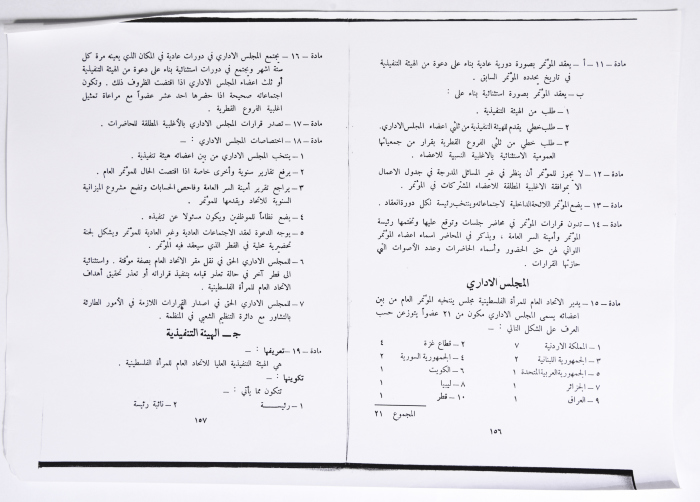 مادة – ١١ – أ – يعقد المؤتمر بصورة دورية عادية بناء على دعوة من الهيئة التنفيذية
في تاريخ يحدده المؤتمر السابق .
ب – يعقد المؤتمر بصورة استثنائية بناء على :
١ – طلب من الهيئة التنفيذية .
٢ – طلب خطي يقدم للهيئة التنفيذية من ثلثي اعضاء المجلس الاداري.
٣ – طلب خطي من ثلثي الفروع القطرية بقرار من جمعياتها
العمومية الاستثنائية بالاغلبية النسبية للاعضاء .
مادة – ١٢ – لا يجوز للمؤتمر أن ينظر في غير المسائل المدرجة في جدول الاعمال
الا بموافقة الاغلبية المطلقة للاعضاء المشتركات في المؤتمر .
مادة – ١٣ – يضع المؤتمر اللائحة الداخلية لاجتماعاته وينتخب رئيسة لكل دورة انعقاد .
مادة – ١٤ – تدون قرارات المؤتمر في محاضر جلسات وتوقع عليها وتختمها رئيسة
المؤتمر وأمينة السر العامة ، ويذكر في المحاضر اسماء اعضاء المؤتمر
اللواتي لهن حق الحضور وأسماء الحاضرات وعدد الأصوات التي
حازتها القرارات .
المجلس الاداري
مادة – ١٥ – يدير الاتحاد العام للمرأة الفلسطينية مجلس ينتخبه المؤتمر العام من بين
اعضائه يسمى المجلس الاداري مكون من ٢١ عضواً يتوزعن حسب
العرف على الشكل التالي : –
١ – المملكة الاردنية ٧ ٢ – قطاع غزة ٤
٣ – الجمهورية اللبنانية ٢ ٤ – الجمهورية السورية ٢
٥ – الجمهورية العربية المتحدة ١ ٦ – الكويت ١
٧ – الجزائر ١ ٨ – ليبيا ١
٩ – العراق ١ ١٠ – قطر ١
المجموع ٢١
١٥٦
مادة – ١٦ – يجتمع المجلس الاداري في دورات عادية في المكان الذي يعينه مرة كل
ستة اشهر ويجتمع في دورات استثنائية بناء على دعوة من الهيئة التنفيذية
أو ثلث اعضاء المجلس الاداري اذا اقتضت الظروف ذلك . وتكون
اجتماعاته صحيحة اذا حضرها احد عشر عضواً مع مراعاة تمثيل
اغلبية الفروع القطرية .
مادة – ١٧ – تصدر قرارات المجلس الاداري بالأغلبية المطلقة للحاضرات .
مادة – ١٨ – اختصاصات المجلس الاداري : –
١ – ينتخب المجلس الاداري من بين اعضائه هيئة تنفيذية .
٢ – يرفع تقارير سنوية وأخرى خاصة اذا اقتضت الحال للمؤتمر العام .
٣ – يراجع تقرير أمينة السر العامة وفاحص الحسابات وتضع مشروع الميزانية
السنوية للاتحاد ويقدمها للمؤتمر .
٤ – يضع نظاماً للموظفين ويكون مسئولا عن تنفيذه .
٥ – يوجه الدعوة لعقد الاجتماعات العادية وغير العادية للمؤتمر ويشكل لجنة
تحضيرية محلية في القطر الذي سيعقد فيه المؤتمر .
٦ – للمجلس الاداري الحق في نقل مقر الاتحاد العام بصفة مؤقتة ، واستثنائية
الى قطر آخر في حالة تعذر قيامه بتنفيذ قراراته أو تعذر تحقيق أهداف
الاتحاد العام للمرأة الفلسطينية .
٧ – للمجلس الاداري الحق في اصدار القرارات اللازمة في الأمور الطارئة
بالتشاور مع دائرة التنظيم الشعبي في المنظمة .
جـ – الهيئة التنفيذية
مادة – ١٩ – تعريفها : –
هي الهيئة التنفيذية العليا للاتحاد العام للمرأة الفلسطينية .
تكوينها : –
تتكون مما يأتي : –
١ – رئيسة ٢ – نائبة رئيسة
١٥٧